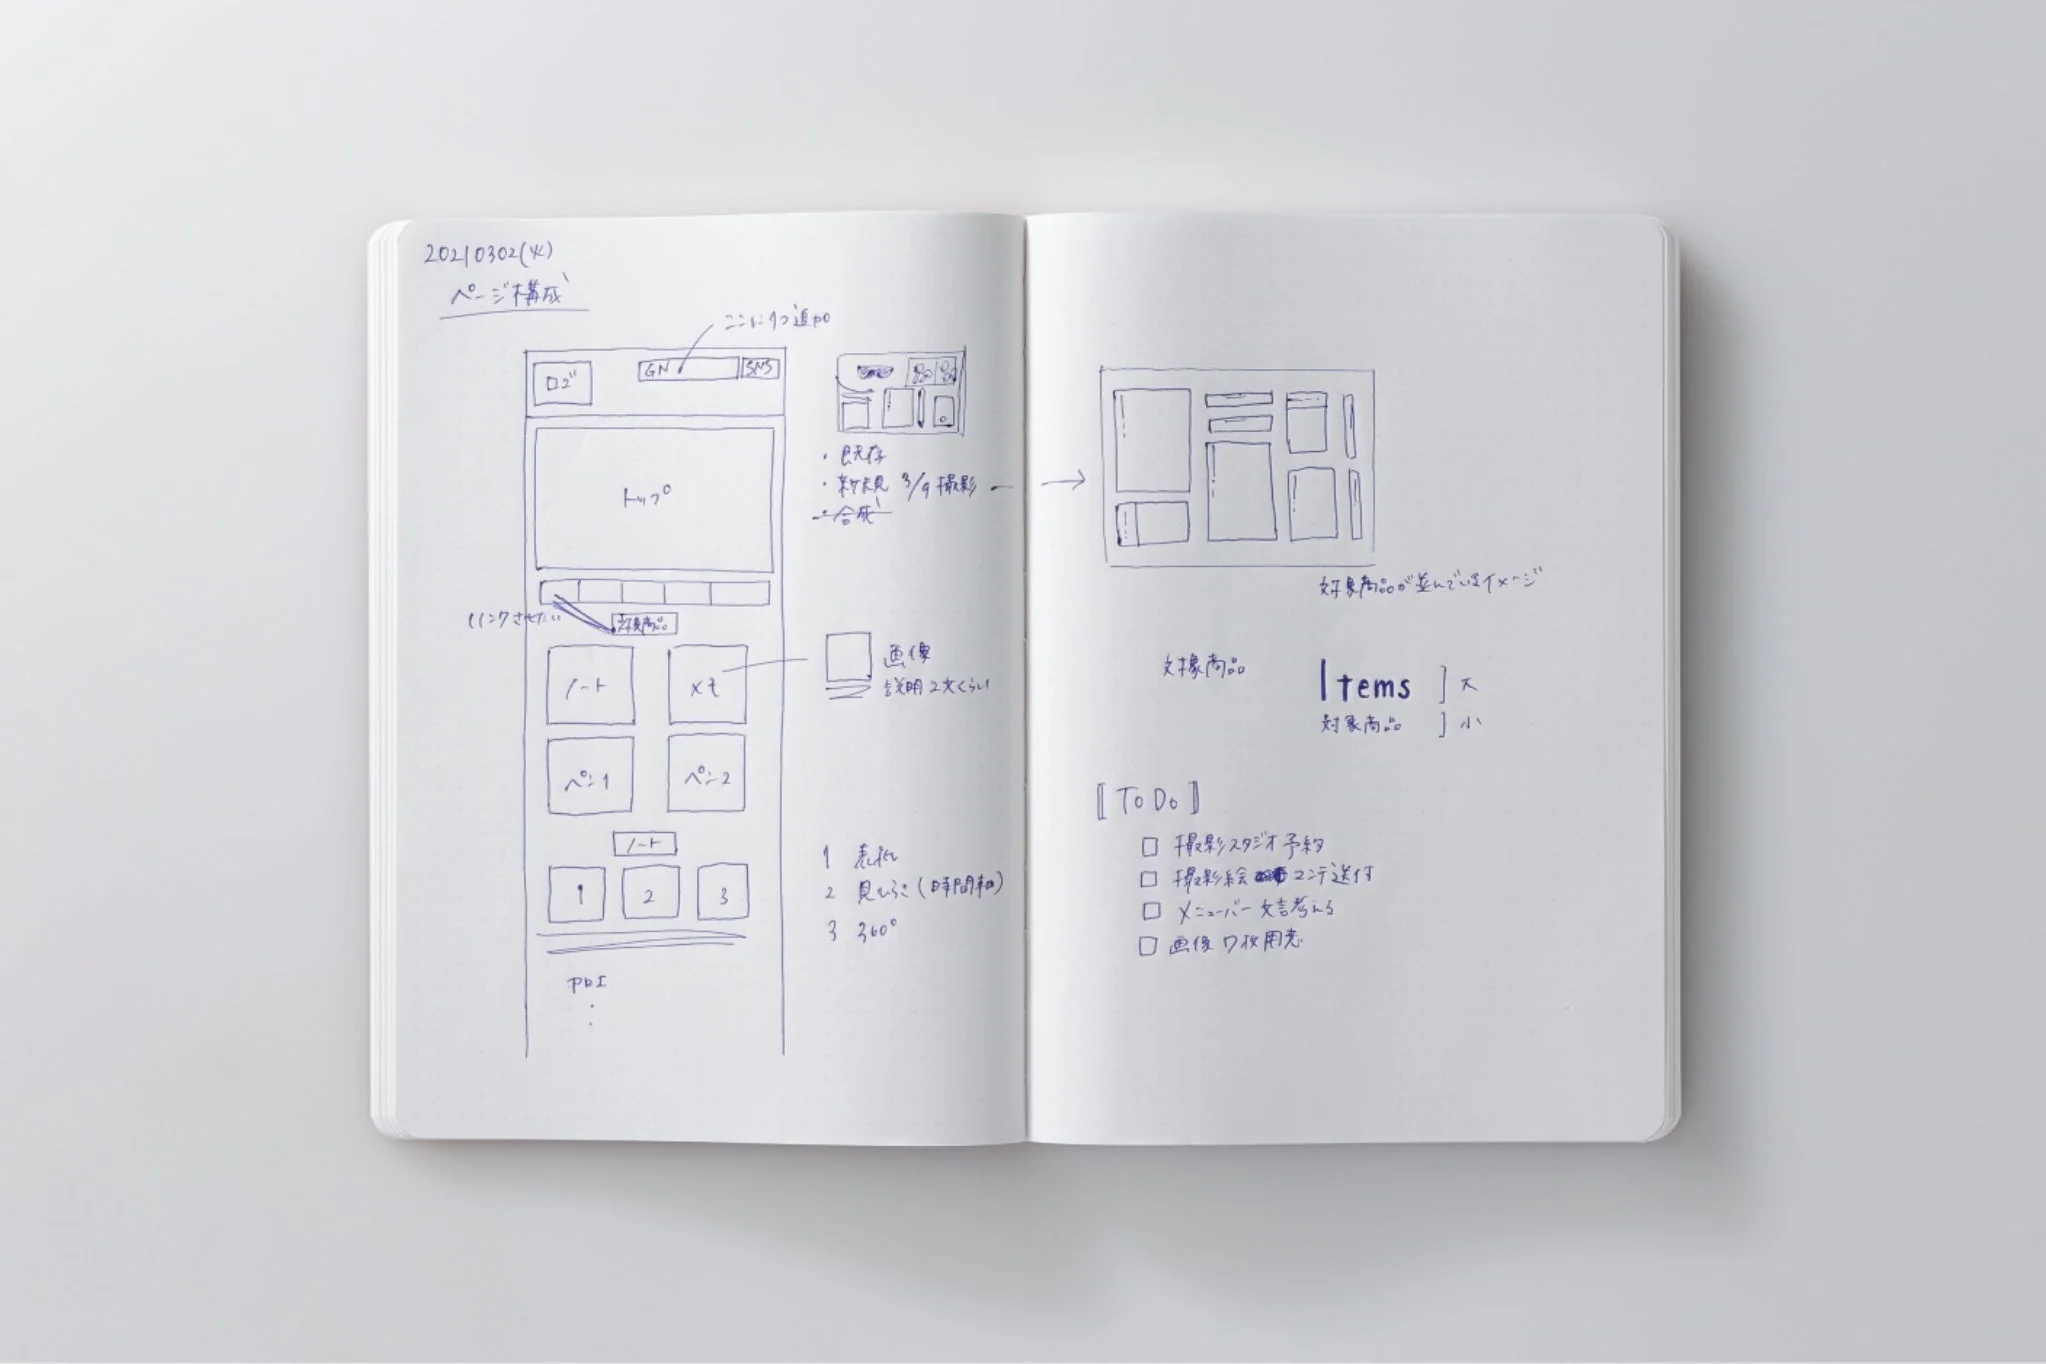 20210302(火)
ページ構成
ここに1つ追加
ロゴ
GN
SNS
トップ
・既存
・新規 3/9 撮影 →
・合成
リンクさせたい
対象商品
ノート
メモ
画像
説明2文くらい
ペン1
ペン2
ノート
1
2
3
1 表紙
2 見ひらき(時間軸)
3 360°
対象商品が並んでいるイメージ
対象商品
Items ] 大
対象商品 ] 小
[ToDo]
□ 撮影スタジオ予約
□ 撮影絵コンテ送付
□ メニューバー文言考える
□ 画像7枚用意